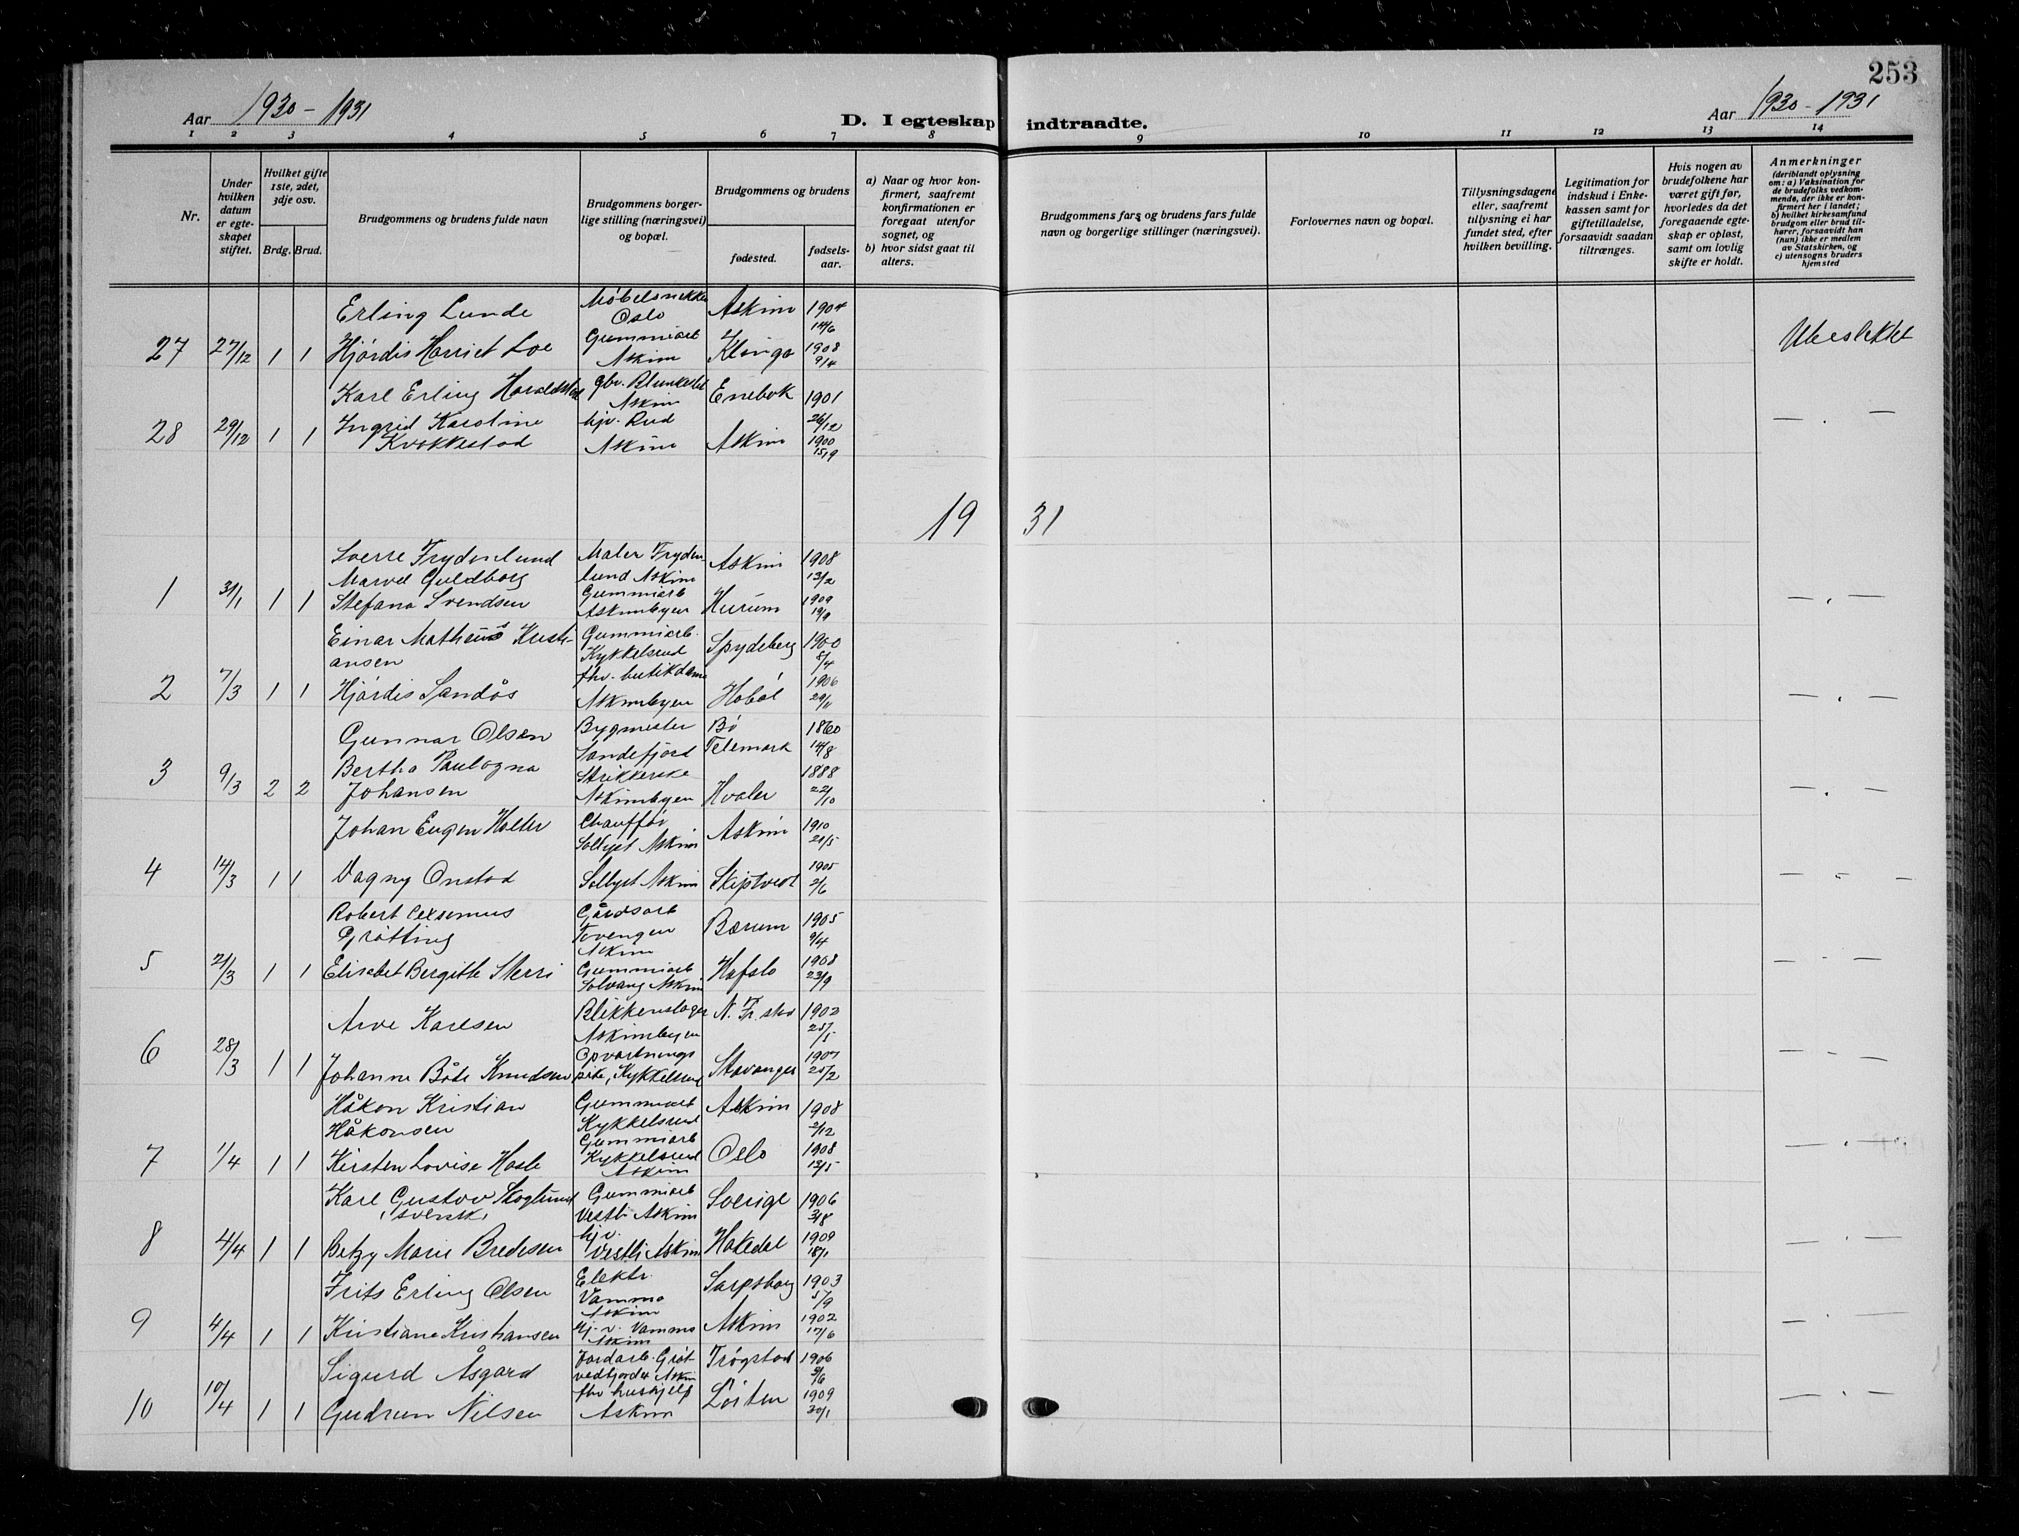 253
Aar 1930 - 1931
D. I egteskap indtraadte.
Aar 1930 - 1931
1 2 3 4 5 6 7 8 9 10 11 12 13 14
Nr.
Under hvilken datum er egteskapet stiftet.
Hvilket gifte 1ste, 2det, 3dje osv.
Brdg. Brud.
Brudgommens og brudens fulde navn
Brudgommens borgerlige stilling (næringsvei) og bopæl.
Brudgommens og brudens
fødested.
fødselsaar.
a) Naar og hvor konfirmert, saafremt konfirmationen er foregaat utenfor sognet, og
b) hvor sidst gaat til alters.
Brudgommens fars og brudens fars fulde navn og borgerlige stillinger (næringsvei).
Forlovernes navn og bopæl.
Tillysningsdagene eller, saafremt tillysning ei har fundet sted, efter hvilken bevilling.
Legitimation for indskud i Enkekassen samt for giftetilladelse, forsaavidt saadan tiltrænges.
Hvis nogen av brudefolkene har været gift før, hvorledes da det foregaaende egteskap er opløst, samt om lovlig skifte er holdt.
Anmerkninger
(deriblandt oplysning om: a) Vaksination for de brudefolks vedkommende, der ikke er konfirmert her i landet; b) hvilket kirkesamfund brudgom eller brud tilhører, forsaavidt han (hun) ikke er medlem av Statskirken, og c) utensogns bruders hjemsted
Erling Lunde Møbelsnekker Oslo Askim 1904 14/6
27 27/12 1 1 Hjørdis Harriet Loe Gummiarb Askim Klinga 1908 9/4 Ubeslektet
Karl Erling Haraldstad gbr. Askim Enebak 1901 26/12
28 29/12 1 1 Ingrid Karoline Kvakkestad hjv. Rud Askim Askim 1900 15/9 — . —
19 31
Sverre Frydenlund Maler Frydenlund Askim Askim 1908 13/2
1 31/1 1 1 Marvel Guldborg Stefana Svendsen Gummiarb Askimbyen Hurum 1909 19/9 — . —
Einar Matheus Kristiansen Gummiarb. Kykkelsrud Spydeberg 1900 8/4
2 7/3 1 1 Hjørdis Sandås fhv. butikdame Askimbyen Hobøl 1906 29/11 — . —
Gunnar Olsen Bygmester Sandefjord Bø Telemark 1860 14/8
3 9/3 2 2 Bertha Paulogna Johansen Strikkerske Askimbyen Hvaler 1888 22/10 — . —
Johan Eugen Holter Chauffør Sollyst Askim Askim 1910 20/5
4 14/3 1 1 Dagny Onstad Sollyst Askim Skiptvedt 1905 2/6 — . —
Robert Grøtting Gårdsarb Tovengen Askim Bærum 1905 9/4
5 21/3 1 1 Elisabet Bergitte Skerri Gummiarb Solvang Askim Hafslo 1908 23/9 — . —
Arve Karlsen Blikkenslager Askimbyen N. Fr.stad 1902 25/5
6 28/3 1 1 Johanne Båte Knudsen Opvartningspike, Kykkelsrud Stavanger 1907 25/2 — . —
Håkon Kristian Håkonsen Gummiarb Kykkelsrud Askim 1908 2/12
7 1/4 1 1 Kirsten Lovise Hasle Gummiarb Kykkelsrud Askim Oslo 1908 13/5 — . —
Karl Gustav Skoglund, svensk, Gummiarb Vestli Askim Sverige 1906 3/8
8 4/4 1 1 Betzy Marie Bredesen hjv. Vestli Askim Hakedal 1909 18/1 — . —
Frits Erling Olsen Elektr. Vamma Askim Sarpsborg 1903 5/9
9 4/4 1 1 Kristiane Kristiansen hj. v. Vamma Askim Askim 1902 17/6 — . —
Sigurd Åsgard Jordarb. Askim Trøgstad 1906 9/6
10 10/4 1 1 Gudrun Nilsen fhv hushjelp Askim Løiten 1909 30/1 — . —